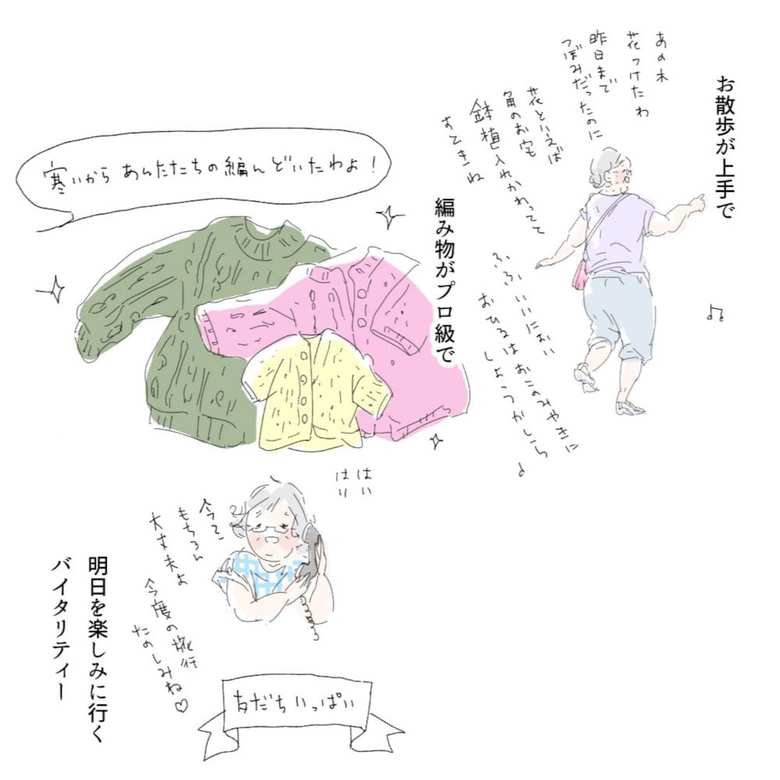 お散歩が上手で
あの木
花つけたわ
昨日まで
つぼみだったのに
花といえば
角のお宅
鉢植え入れかわってて
すてきね
ふふいいにおい
おひるはおこのみやきに
しようかしら♪
編み物がプロ級で
寒いから あんたたちの編んどいたわよ！
はい
はい
もちろん
大丈夫よ
今度の旅行
たのしみね♡
友だちいっぱい
明日を楽しみに行く
バイタリティー